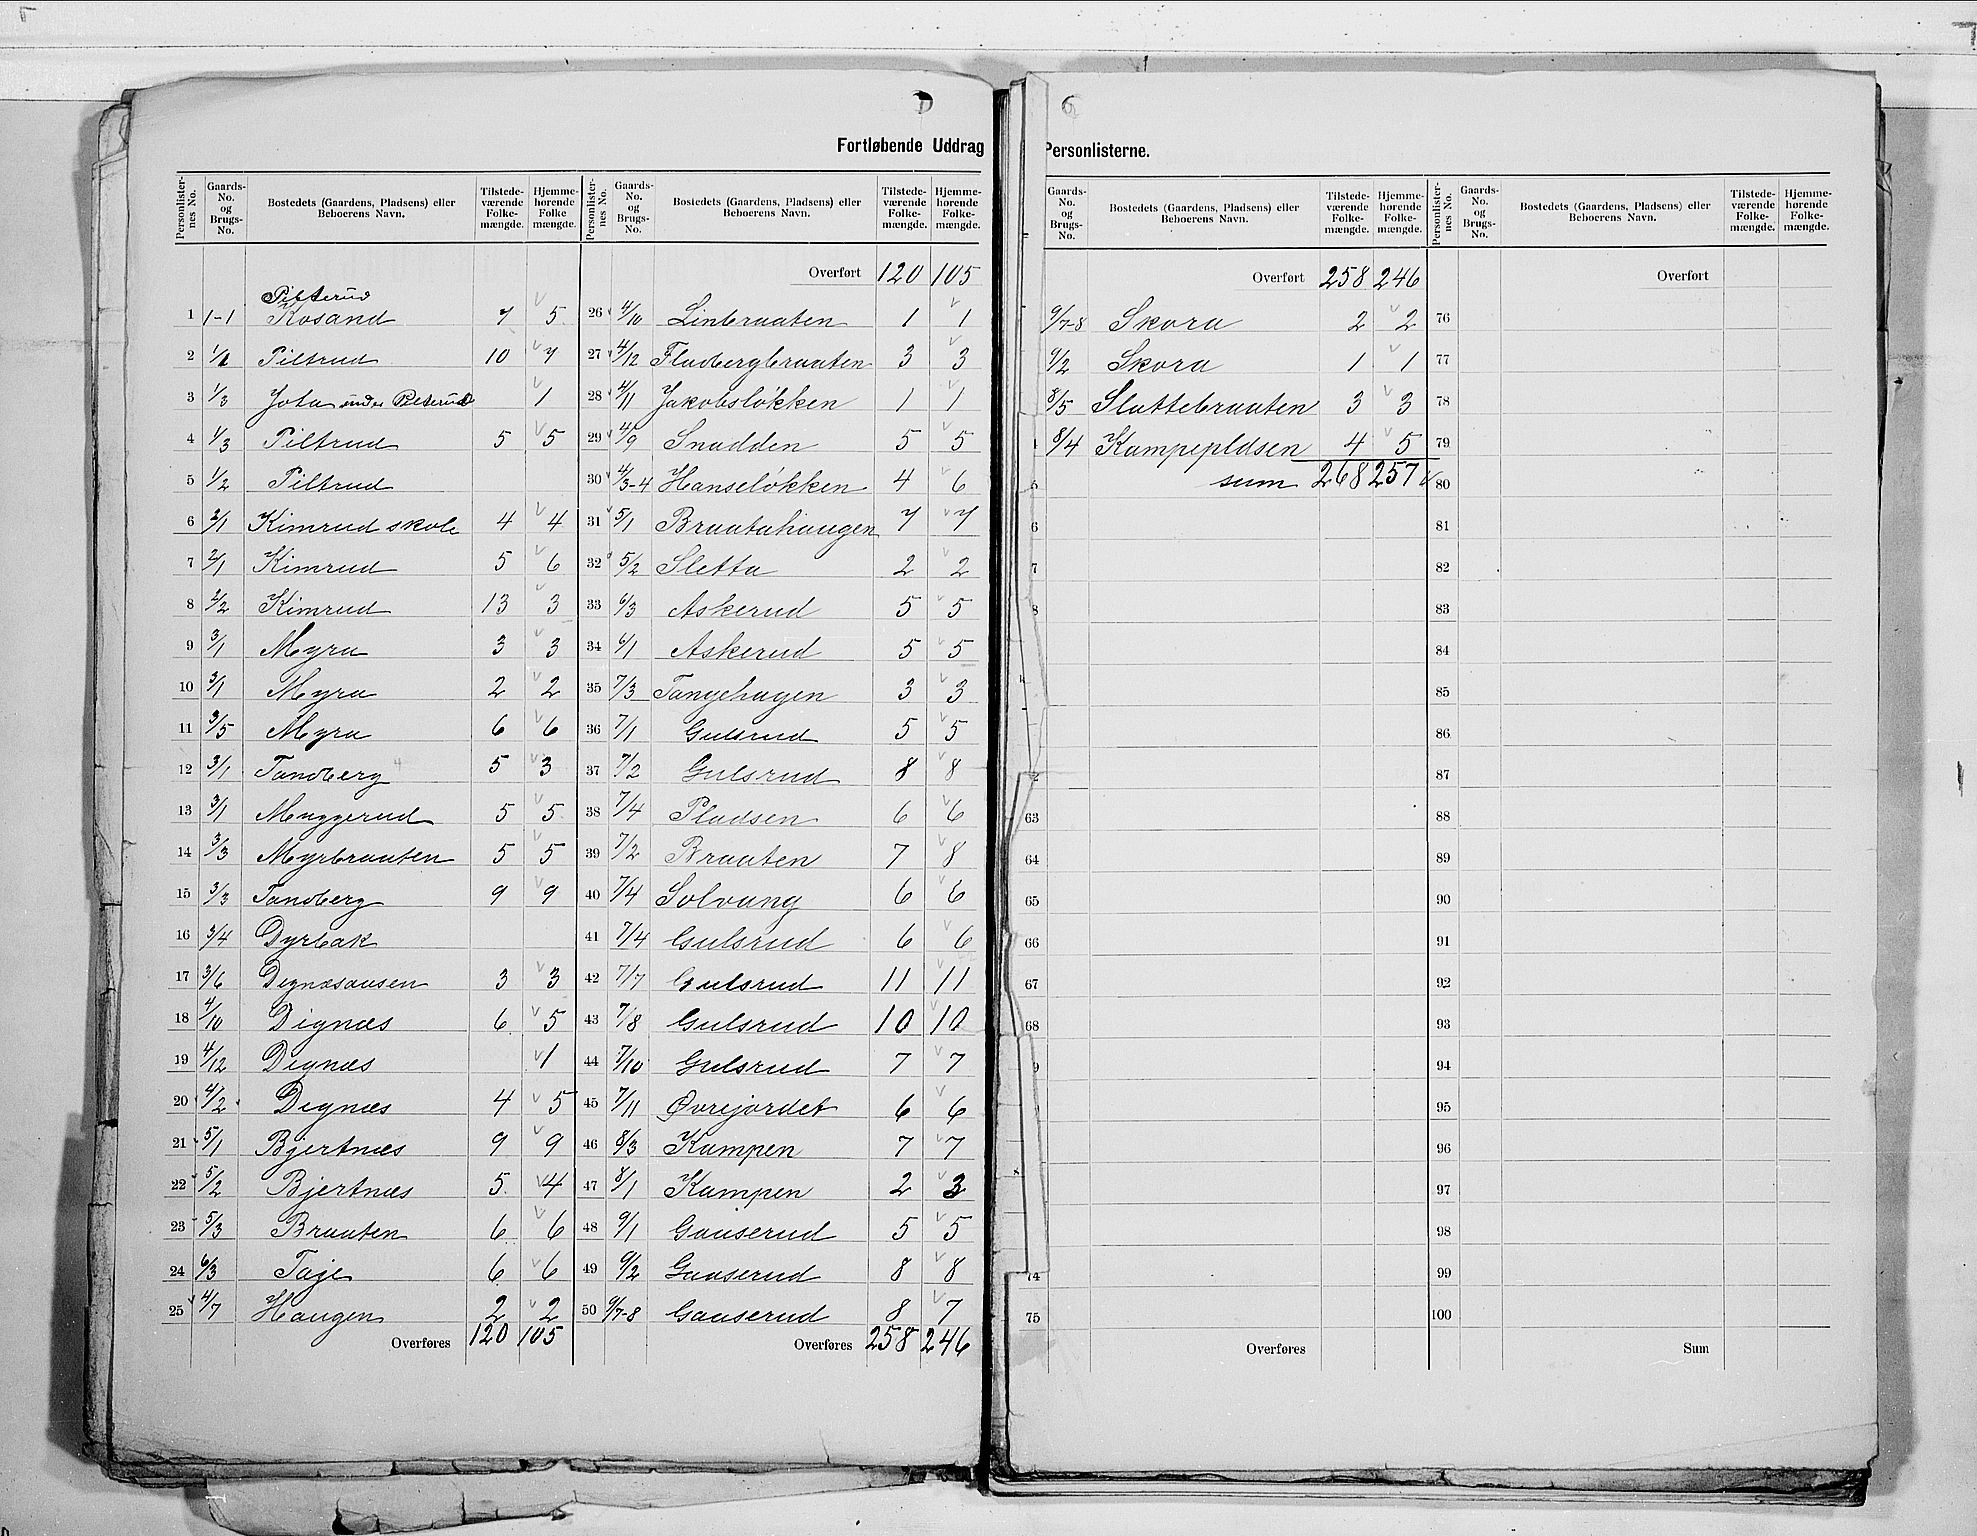 Fortløbende Uddrag
Personlisterne.
Personlister-nes No. | Gaards-No. og Brugs-No. | Bostedets (Gaardens, Pladsens) eller Beboerens Navn. | Tilstede-værende Folke-mængde. | Hjemme-hørende Folke mængde.
1 | 1-1 | Pilterud Rosand | 7 | 5
2 | 1/1 | Piltrud | 10 | 7
3 | 1/3 | Jota under Pilterud | | 1
4 | 1/3 | Piltrud | 5 | 5
5 | 1/2 | Piltrud
6 | 2/1 | Kimrud skole | 4 | 4
7 | 2/1 | Kimrud | 5 | 6
8 | 2/2 | Kimrud | 13 | 3
9 | 3/1 | Myra | 3 | 3
10 | 3/1 | Myra | 2 | 2
11 | 3/5 | Myra | 6 | 6
12 | 3/1 | Tandberg | 5 | 3
13 | 3/1 | Muggerud | 5 | 5
14 | 3/3 | Myrbraaten | 5 | 5
15 | 3/3 | Tandberg | 9 | 9
16 | 3/4 | Dyrbak
17 | 3/6 | Dignæsaasen | 3 | 3
18 | 4/10 | Dignæs | 6 | 5
19 | 4/12 | Dignæs | | 1
20 | 4/2 | Dignæs | 4 | 5
21 | 5/1 | Bjertnæs | 9 | 9
22 | 5/2 | Bjertnæs | 5 | 4
23 | 5/3 | Braaten | 6 | 6
24 | 6/3 | Taje | 6 | 6
25 | 4/7 | Haugen | 2 | 2
Overføres | 120 | 105
Personlister-nes No. | Gaards-No. og Brugs-No. | Bostedets (Gaardens, Pladsens) eller Beboerens Navn. | Tilstede-værende Folke-mængde. | Hjemme-hørende Folke-mængde.
Overført | 120 | 105
26 | 4/10 | Linbraaten | 1 | 1
27 | 4/12 | Fladbergbraaten | 3 | 3
28 | 4/11 | Jakobsløkken | 1 | 1
29 | 4/9 | Snadden | 5 | 5
30 | 4/3-4 | Hanseløkken | 4 | 6
31 | 5/1 | Braatahaugen | 7 | 7
32 | 5/2 | Sletta | 2 | 2
33 | 6/3 | Askerud | 5 | 5
34 | 6/1 | Askerud | 5 | 5
35 | 7/3 | Tangehagen | 3 | 3
36 | 7/1 | Gulsrud | 5 | 5
37 | 7/2 | Gulsrud | 8 | 8
38 | 7/4 | Pladsen | 6 | 6
39 | 7/2 | Braaten | 7 | 8
40 | 7/4 | Solvang | 6 | 6
41 | 7/4 | Gulsrud | 6 | 6
42 | 7/7 | Gulsrud | 11 | 11
43 | 7/8 | Gulsrud | 10 | 10
44 | 7/10 | Gulsrud | 7 | 7
45 | 7/11 | Øvrejordet | 6 | 6
46 | 8/3 | Kampen | 7 | 7
47 | 8/1 | Kampen | 2 | 3
48 | 9/1 | Gauserud | 5 | 5
49 | 9/2 | Gauserud | 8 | 8
50 | 9/7-8 | Gauserud | 8 | 7
Overføres | 258 | 246
Gaards-No. og Brugs-No. | Bostedets (Gaardens, Pladsens) eller Beboerens Navn. | Tilstede-værende Folke-mængde. | Hjemme-hørende Folke-mængde.
Overført | 258 | 246
9/7-8 | Skora | 2 | 2
9/2 | Skora | 1 | 1
8/5 | Slattebraaten | 3 | 3
8/4 | Kampepldsen | 4 | 5
5 | sum | 268 | 257
6
7
8
2
63
64
65
66
67
68
9
74
75
Overføres
Personlister-nes No. | Gaards-No. og Brugs-No. | Bostedets (Gaardens, Pladsens) eller Beboerens Navn. | Tilstede-værende Folke-mængde. | Hjemme-hørende Folke-mængde.
Overført
76
77
78
79
80
81
82
83
84
85
86
87
88
89
90
91
92
93
94
95
96
97
98
99
100
Sum